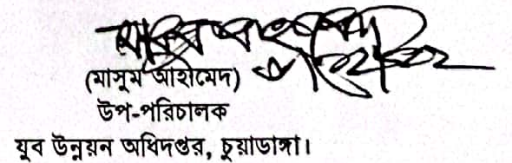 (মাসুম আহাম্মেদ)
উপ-পরিচালক
যুব উন্নয়ন অধিদপ্তর, চুয়াডাঙ্গা।